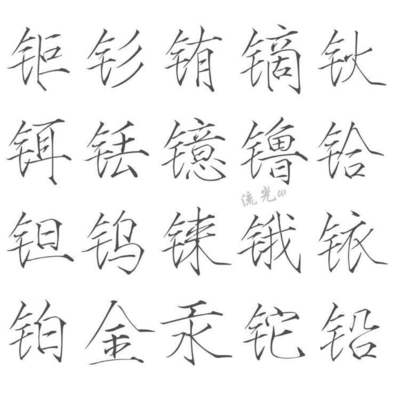 钷钐铕镝钬
铒铥镱镥铪
流光
钽钨铼锇铱
铂金汞铊铅